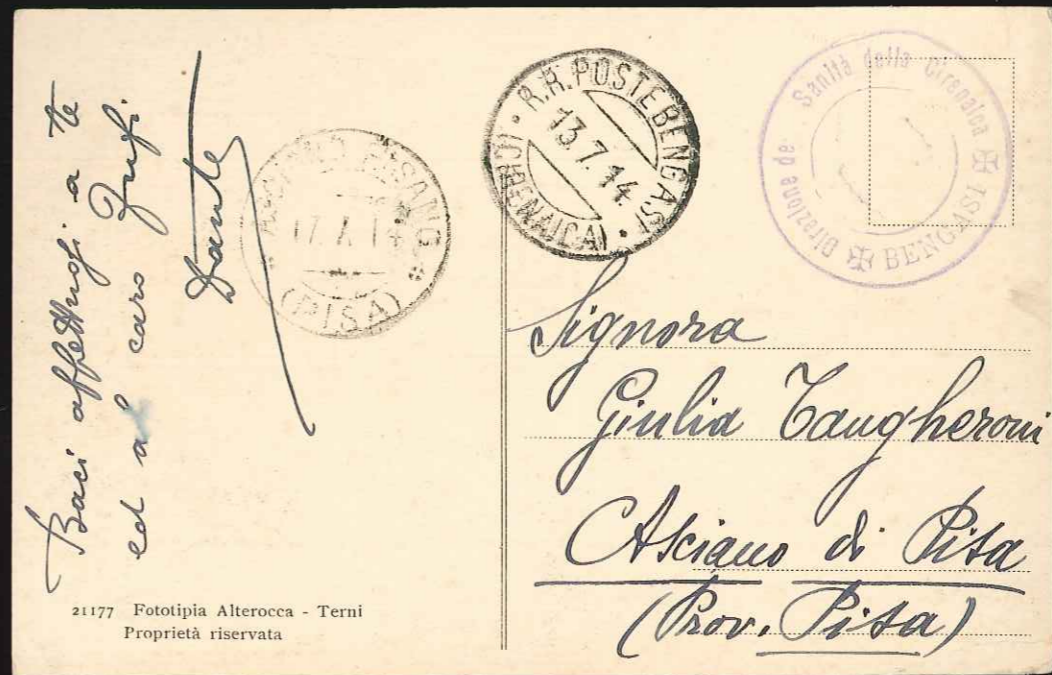 Baci affettuosi a te
ed al caro
Dante
ASCIANO PISANO
17.7.14
(PISA)
R.R. POSTE BENGASI
13.7.14
(CIRENAICA)
Direzione de Sanità della Cirenaica
BENGASI
Signora
Giulia Tangheroni
Asciano di Pisa
(Prov. Pisa)
21177 Fototipia Alterocca - Terni
Proprietà riservata